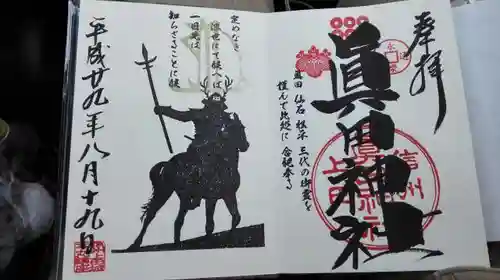 奉拝
眞田神社
信州
上田
真田 仙石 松平 三代の御霊を
謹んで此処に 合祀奉る
定めなき
浮世にて候へば
一日先は
知らざることに候
平成廿九年八月十九日